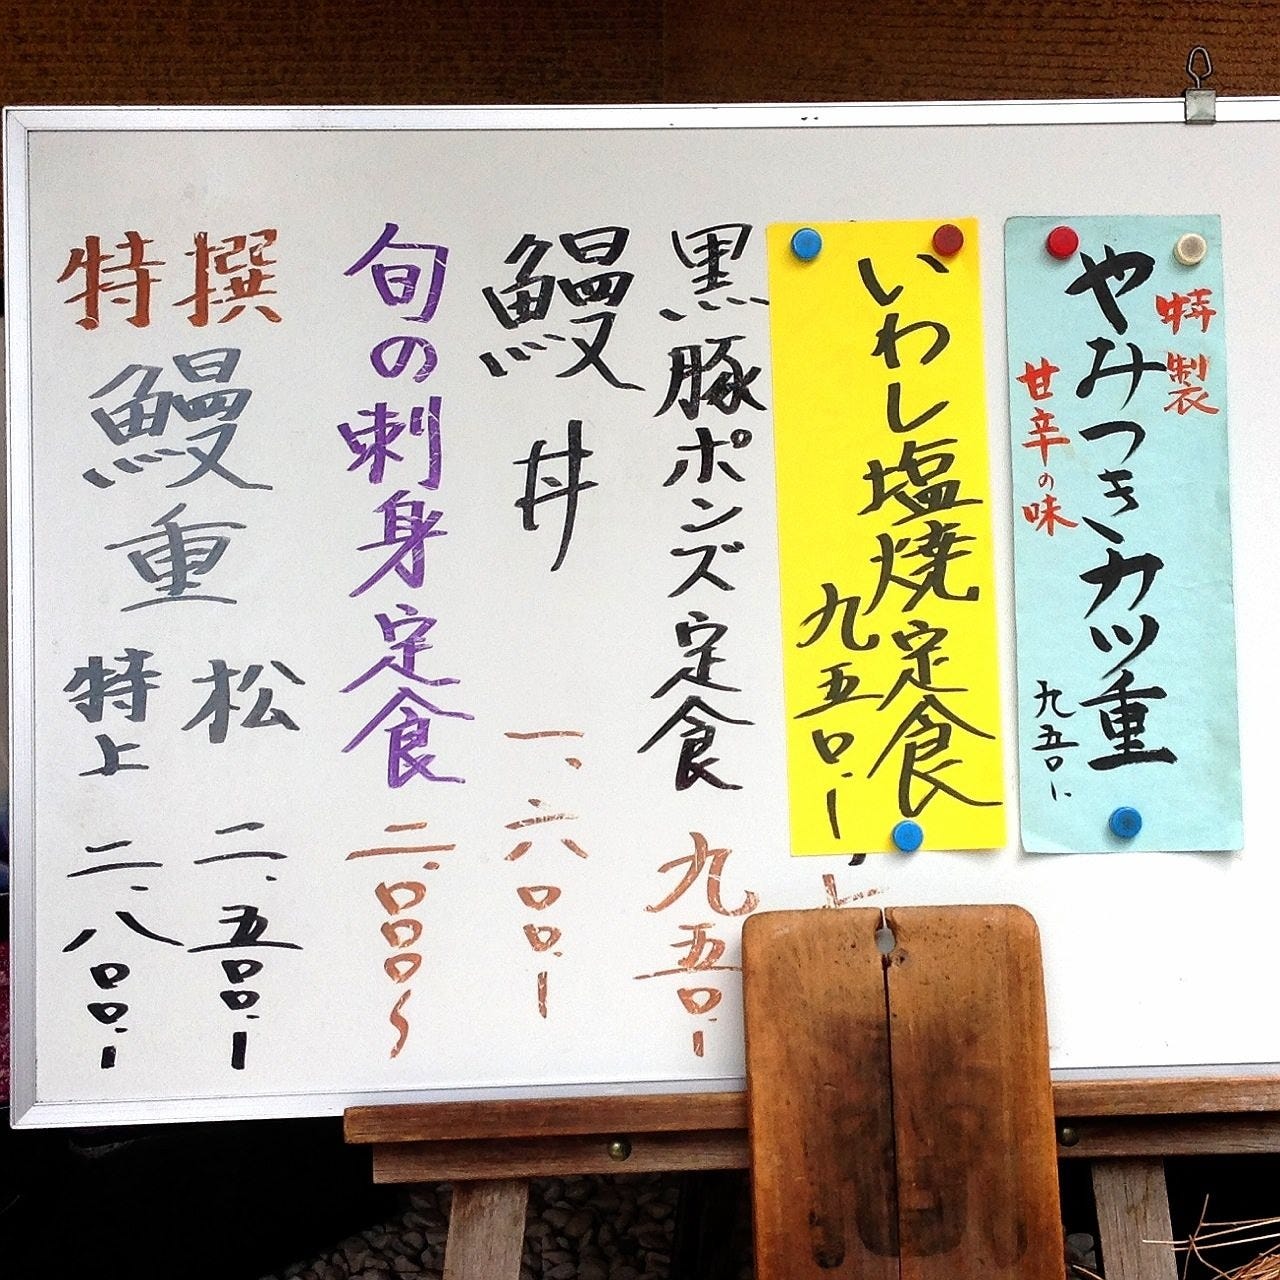 特製
やみつきカツ重
甘辛の味
九五〇.ー
いわし塩焼定食
九五〇.ー
黒豚ポンズ定食 九五〇.ー
鰻丼 一、六〇〇.ー
旬の刺身定食 二、〇〇〇〜
特撰
鰻重
松 二、五〇〇.ー
特上 二、八〇〇.ー